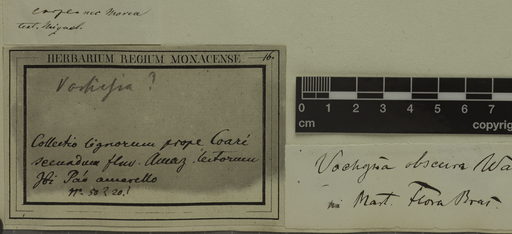 test. Miquel.
HERBARIUM REGIUM MONACENSE
16.
Vochysia ?
Collectio lignorum prope Coari
secundum fluv. Amaz. lectorum
Ibi Páo amarello
Nº. 50? 20!
0 1 2 3 4 5 6 7
cm
copyrig
Vochysia obscura Wa
in Mart. Flora Bras.